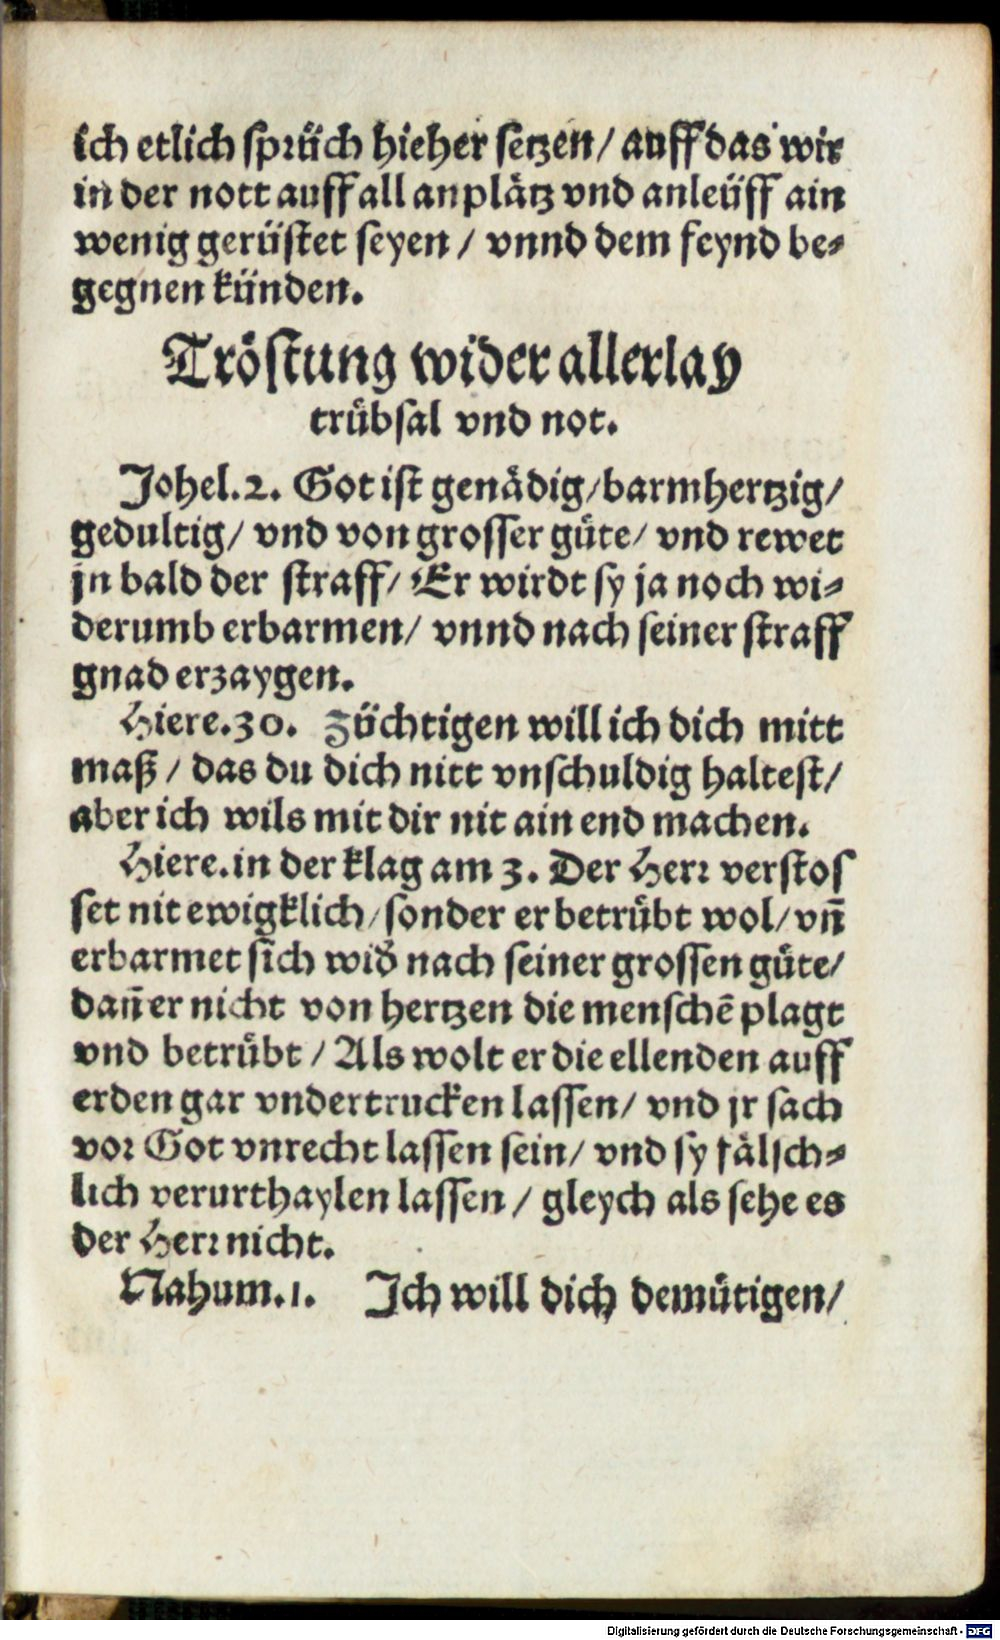 ich etlich sprüch hieher setzen/ auff das wir
in der nott auff all anplätz vnd anleüff ain
wenig gerüstet seyen / vnnd dem feynd be⸗
gegnen künden.
Tröstung wider allerlay
trübsal vnd not.
Johel.2. Got ist genädig/barmhertzig/
gedultig/ vnd von grosser güte/ vnd rewet
jn bald der straff/ Er wirdt sy ja noch wi⸗
derumb erbarmen/ vnnd nach seiner straff
gnad erzaygen.
Hiere.30. Züchtigen will ich dich mitt
maß / das du dich nitt vnschuldig haltest/
aber ich wils mit dir nit ain end machen.
Hiere.in der klag am 3. Der Herr verstos
set nit ewigklich/sonder er betrübt wol/ vñ
erbarmet sich wid̕ nach seiner grossen güte/
dañ er nicht von hertzen die menschē plagt
vnd betrübt / Als wolt er die ellenden auff
erden gar vndertrucken lassen/ vnd jr sach
vor Got vnrecht lassen sein/ vnd sy fälsch⸗
lich verurthaylen lassen / gleych als sehe es
der Herr nicht.
Nahum.1. Ich will dich demütigen/
Digitalisierung gefördert durch die Deutsche Forschungsgemeinschaft - DFG